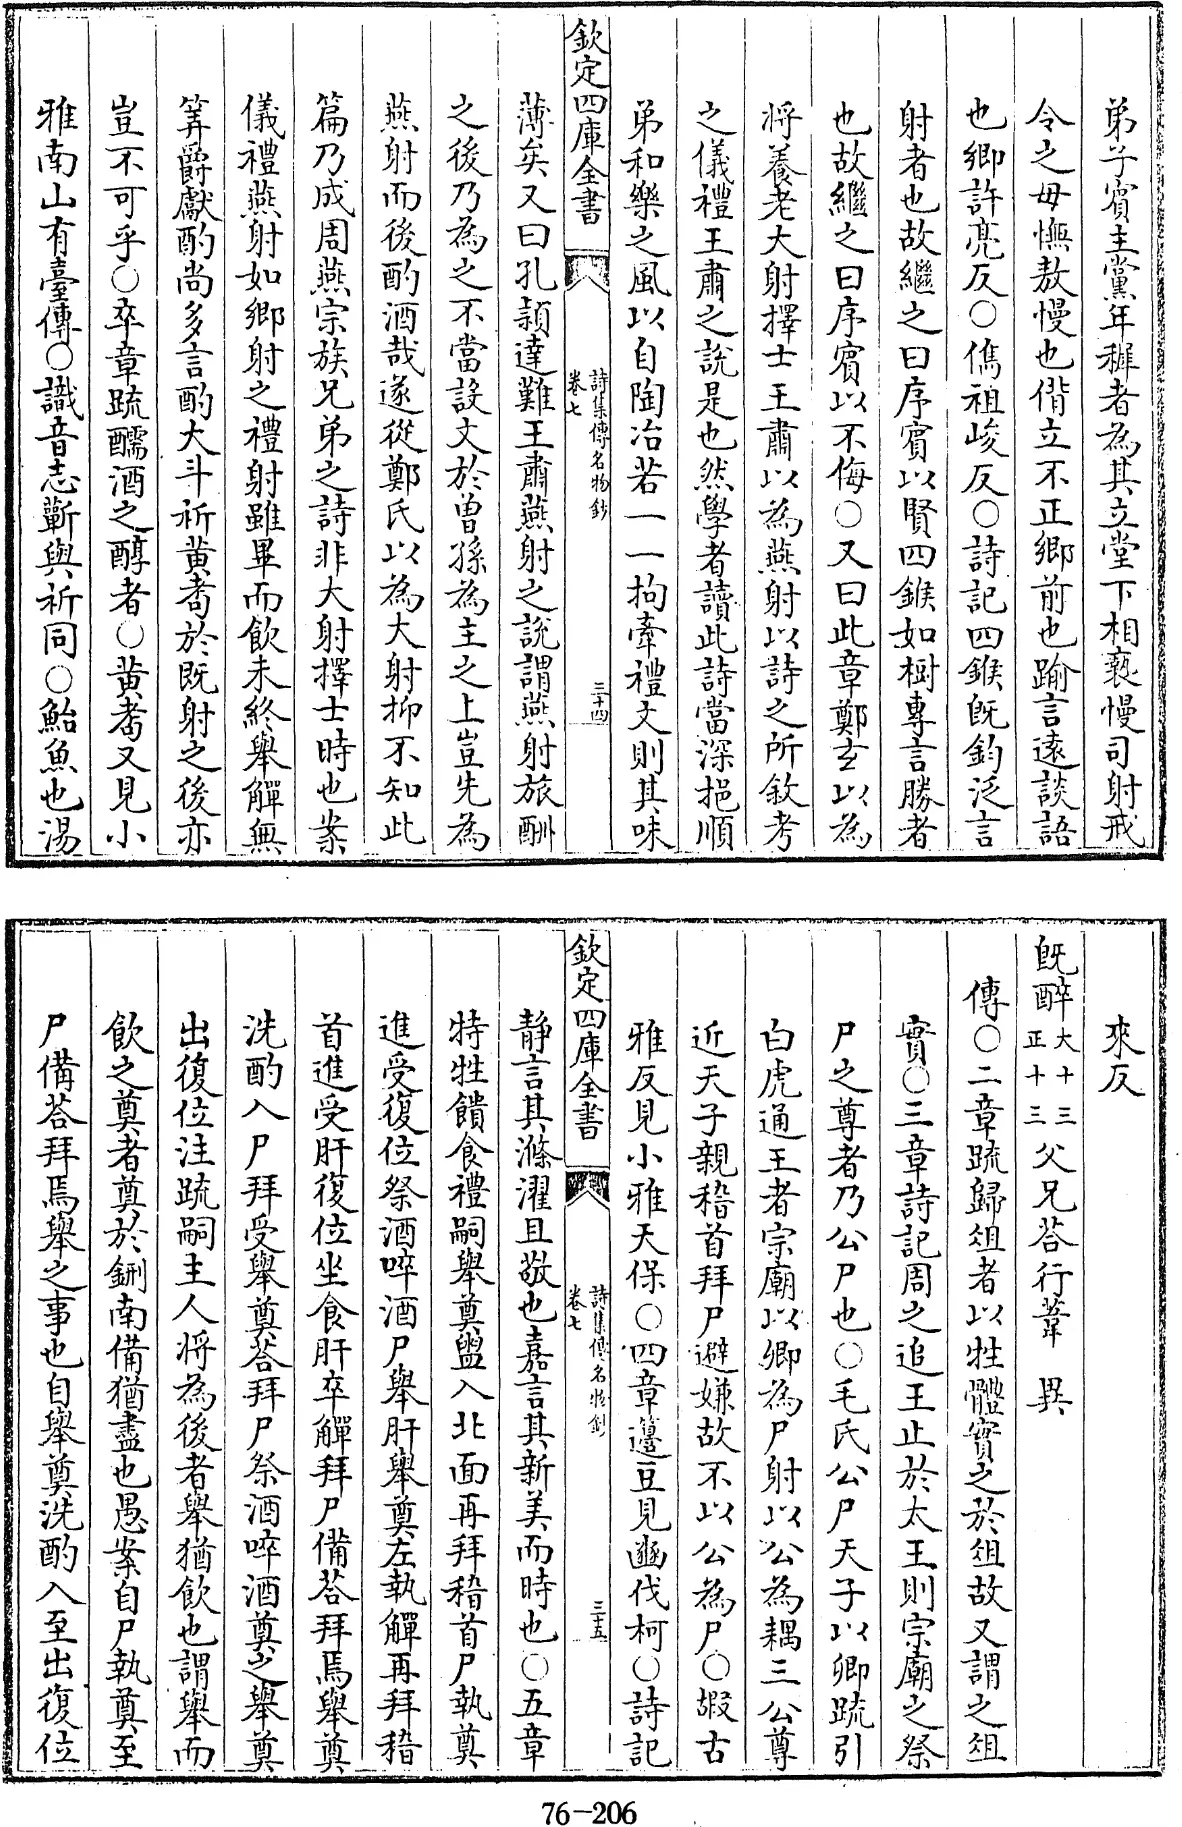 弟子賓主黨年穉者為其立堂下相䙝慢司射戒
令之毋憮敖慢也偝立不正鄉前也踰言遠談語
也鄉許亮反○儁祖峻反○詩記四鍭旣鈞泛言
射者也故繼之曰序賓以賢四鍭如樹專言勝者
也故繼之曰序賓以不侮○又曰此章鄭玄以為
將養老大射擇士王肅以為燕射以詩之所敘考
之儀禮王肅之說是也然學者讀此詩當深挹順
弟和樂之風以自陶冶若一一拘牽禮文則其味
欽定四庫全書
詩集傳名物鈔
卷七
三十四
薄矣又曰孔穎達難王肅燕射之說謂燕射旅酬
之後乃為之不當設文於曾孫為主之上豈先為
燕射而後酌酒哉遂從鄭氏以為大射抑不知此
篇乃成周燕宗族兄弟之詩非大射擇士時也案
儀禮燕射如鄉射之禮射雖畢而飲未終舉觶無
筭爵獻酌尚多言酌大斗祈黄耇於既射之後亦
豈不可乎○卒章䟽醹酒之醇者○黄耇又見小
雅南山有臺傳○識音志蘄與祈同○鮐魚也湯
來反
旣醉大十三正十三父兄荅行葦 異
傳○二章䟽歸俎者以牲體實之於俎故又謂之俎
實○三章詩記周之追王止於太王則宗廟之祭
尸之尊者乃公尸也○毛氏公尸天子以卿䟽引
白虎通王者宗廟以卿為尸射以公為耦三公尊
近天子親稽首拜尸避嫌故不以公為尸○嘏古
雅反見小雅天保○四章籩豆見豳伐柯○詩記
欽定四庫全書
詩集傳名物鈔
卷七
三五
静言其滌濯且敬也嘉言其新美而時也○五章
特牲饋食禮嗣舉奠盥入北面再拜稽首尸執奠
進受復位祭酒啐酒尸舉肝舉奠左執觶再拜稽
首進受肝復位坐食肝卒觶拜尸備荅拜焉舉奠
洗酌入尸拜受舉奠荅拜尸祭酒啐酒奠之舉奠
出復位注䟽嗣主人將為後者舉猶飲也謂舉而
飲之奠者奠於鉶南備猶盡也愚案自尸執奠至
尸備荅拜焉舉之事也自舉奠洗酌入至出復位
76-206